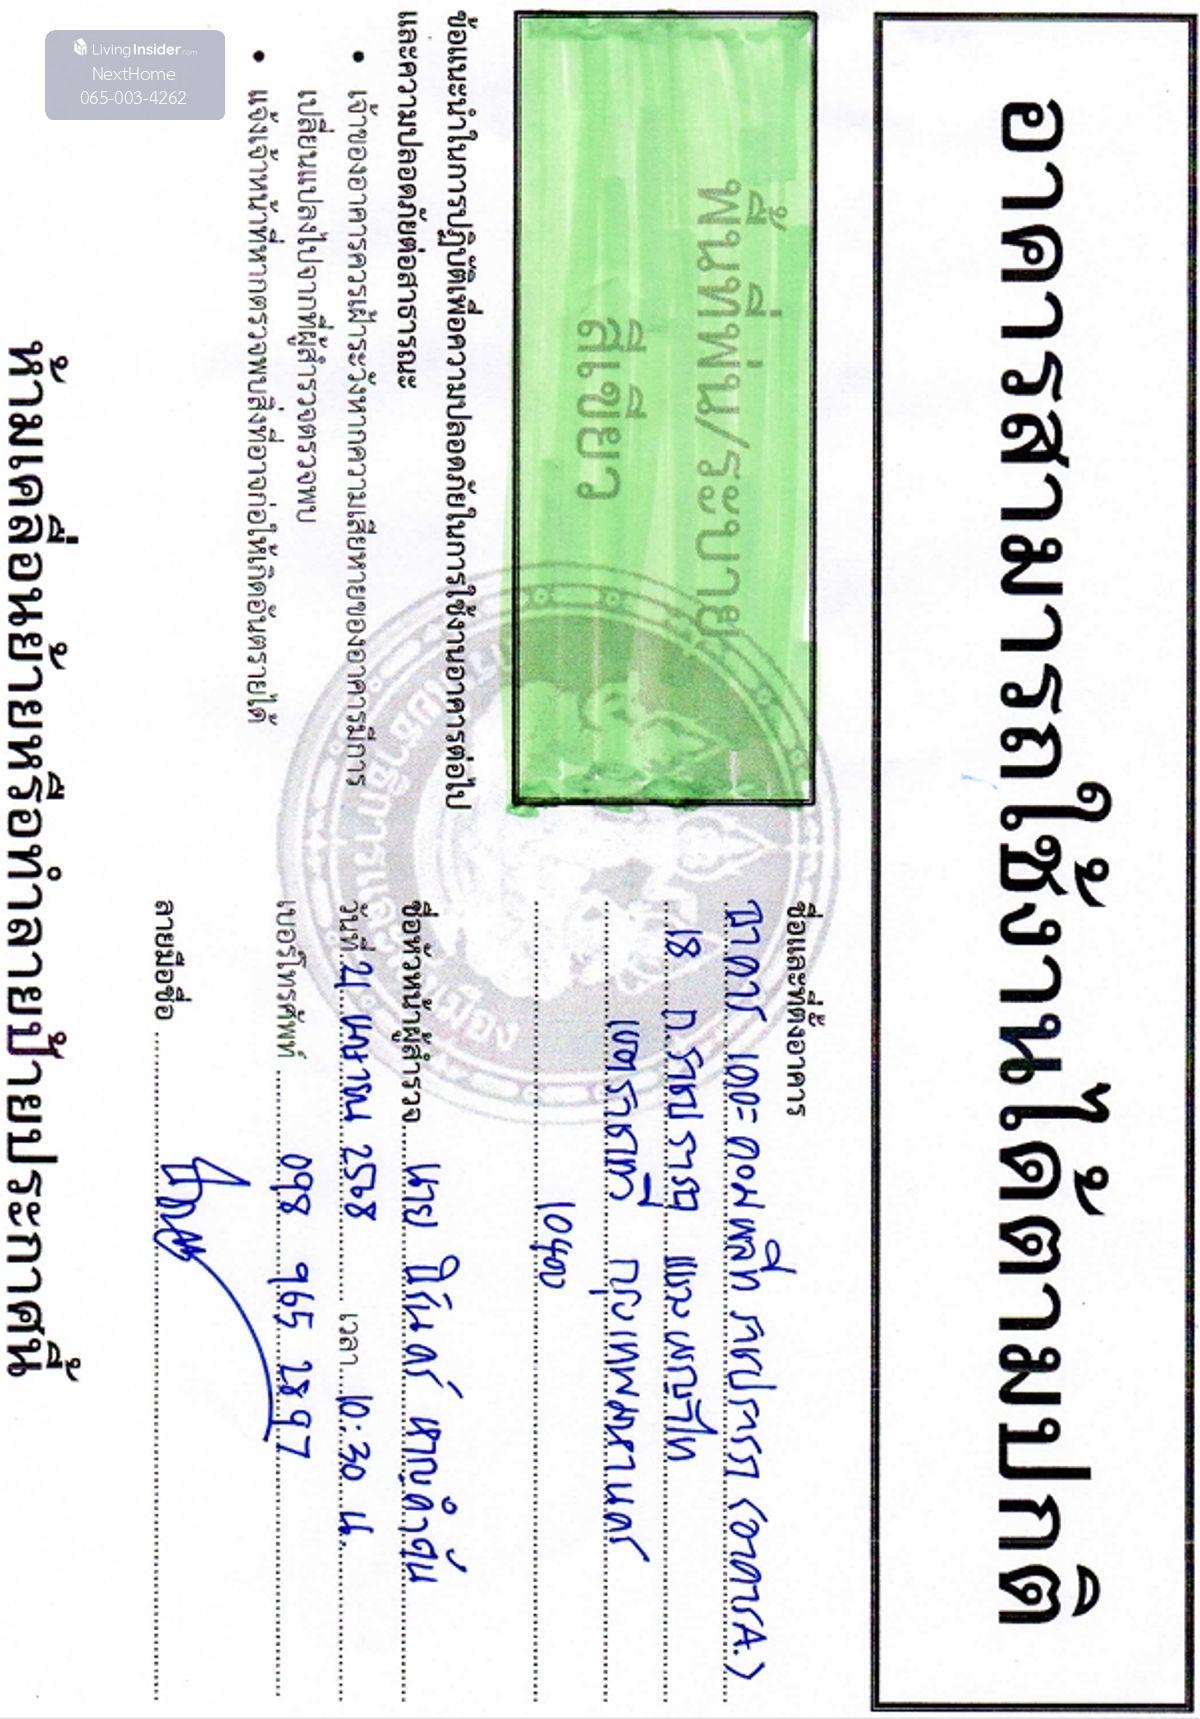 LivingInsider.com
NextHome
065-003-4262
อาคารสามารถใช้งานได้ตามปกติ
พื้นที่พ่น/ระบาย
สีเขียว
ข้อแนะนำในการปฏิบัติเพื่อความปลอดภัยในการใช้งานอาคารต่อไป
และความปลอดภัยต่อสาธารณะ
• เจ้าของอาคารควรเฝ้าระวังหากความเสียหายของอาคารมีการ
เปลี่ยนแปลงไปจากที่ผู้สำรวจตรวจพบ
• แจ้งเจ้าหน้าที่หากตรวจพบสิ่งที่อาจก่อให้เกิดอันตรายได้
ชื่อและที่ตั้งอาคาร
อาคาร เดอะ คอมพลีท ราชปรารภ (อาคาร A.)
18 ถ.ราชปรารภ แขวง พญาไท
เขตราชเทวี กรุงเทพมหานคร
10400
ชื่อหัวหน้าผู้สำรวจ นาย หาญคำตุ้น
วันที่ 21 เมษายน 2568 เวลา 10:30 น.
เบอร์โทรศัพท์ 098 965 2897
ลายมือชื่อ
ห้ามเคลื่อนย้ายหรือทำลายป้ายประกาศนี้